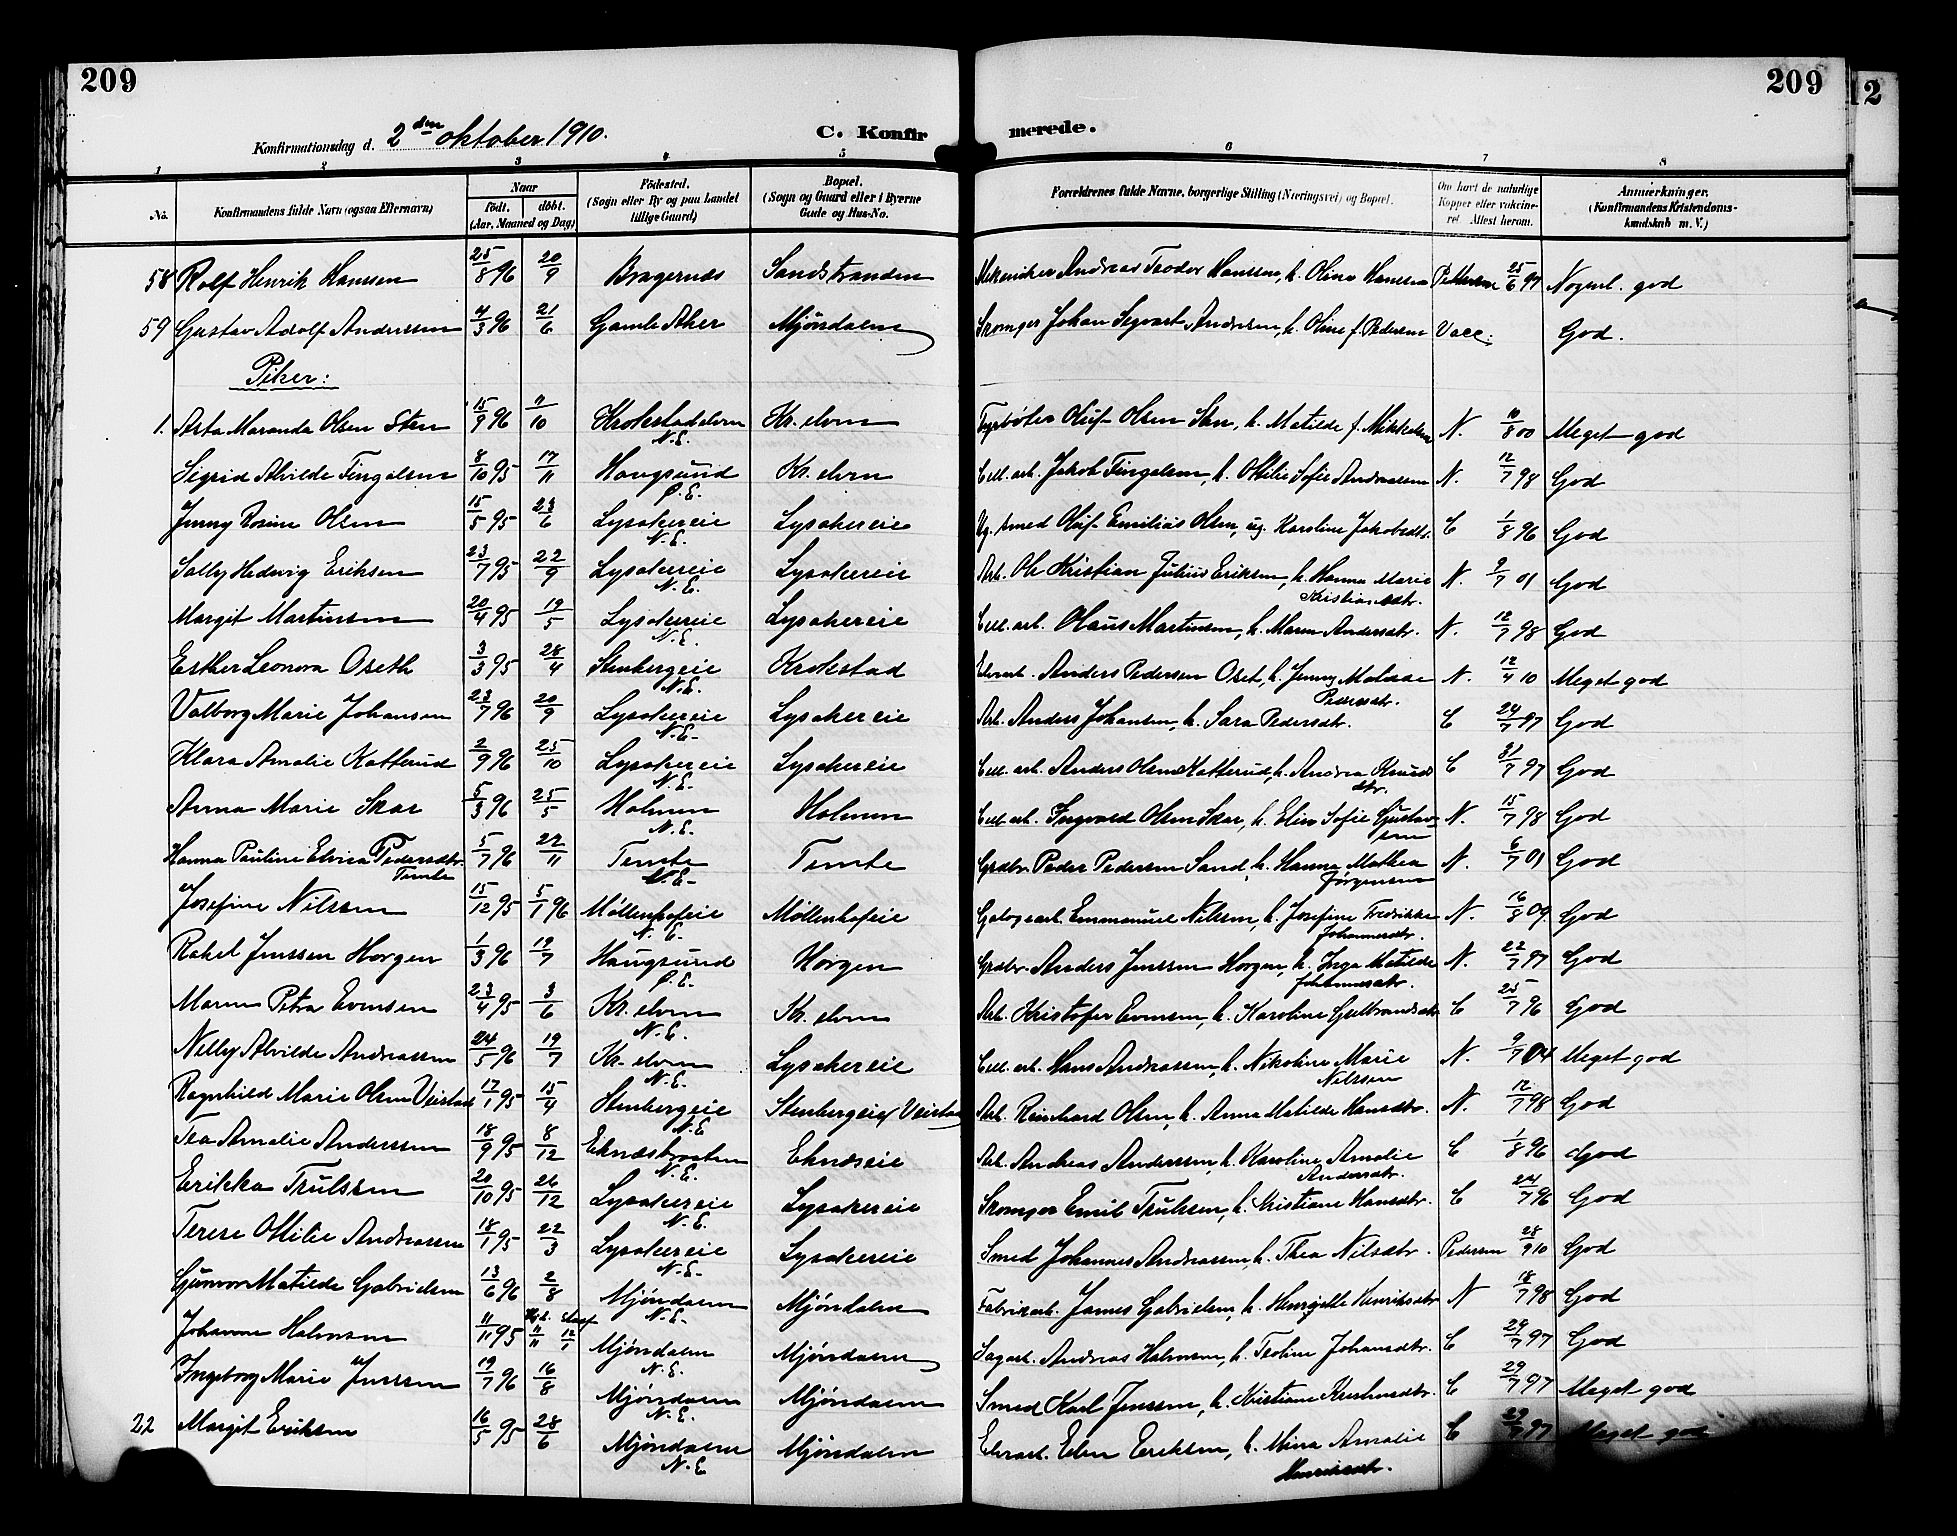 209
209
12
Konfirmationsdag d. 2den oktober 1910.
C. Konfirmerede.
1 2 3 4 5 6 7 8
No. Konfirmandens fulde Navn (ogsaa Efternavn) Naar født. døbt. (Aar, Maaned og Dag) Fødested. (Sogn eller By og paa Landet tillige Gaard) Bopæl. (Sogn og Gaard eller i Byerne Gade og Hus-No. Forældrenes fulde Navne, borgerlige Stilling (Næringsvei) og Bopæl. Om havt de naturlige Kopper eller vakcineret. Attest herom. Anmærkninger. (Konfirmandens Kristendomskundskab m. V.)
58 Rolf Henrik Hanssen 25/8 96 20/9 Bragernes Sandstranden Mekaniker Andreas Teodor Hanssen, h. Oline Hanssen Pettersen 25/6 97 Nogenl. god
59 Gustav Adolf Anderssen 4/3 96 21/6 Gamle Aker Mjøndalen Skomager Johan Segvart Andersen, h. Oline f. Pedersen Vacc. God.
Piker:
1. Asta Maranda Olsen Sten 15/9 96 11/10 Krokstadelven N.E. Kr. elven Fyrbøter Oluf Olsen Sten, h. Matilde f. Mikkelsen N. 10/8 00 Meget god
Sigrid Alvilde Fingalsen 8/10 95 17/11 Hougsund Ø.E. Kr. elven Cell. arb. Jakob Fingalsen, h. Otilie Sofie Andreassen N. 12/7 98 God
Jenny Rosine Olsen 15/5 95 23/6 Lysakereie N.E. Lysakereie Ug. smed Oluf Emilius Olsen, ug. Karoline Jakobsdtr. C 1/8 96 God
Solly Hedvig Eriksen 23/7 95 22/9 Lysakereie N.E. Lysakereie Arb. Ole Kristian Julius Eriksen, h. Hanna Marie Kristiansdtr. N. 9/7 01 God
Margit Martinsen 20/4 95 19/5 Lysakereie N.E. Lysakereie Cell. arb. Olaus Martinsen, h. Maren Andersdtr. N. 12/7 98 God
Esther Leonora Oseth 3/3 95 28/4 Stenbergeie N.E. Krokstad Elvearb. Anders Pedersen Oset, h. Jenny Malene Pedersdtr. N. 12/4 10 Meget god
Valborg Marie Johansen 23/7 96 20/9 Lysakereie N.E. Lysakereie Arb. Anders Johansen, h. Sara Pedersdtr. C 24/7 97 God
Klara Amalie Katterud 2/9 96 25/10 Lysakereie N.E. Lysakereie Cell. arb. Anders Olsen Katterud, h. Andrea Knudsdtr. C 31/7 97 God
Anna Marie Skar 5/3 96 25/5 Holmen N.E. Holmen Cell. arb. Ingvald Olsen Skar, h. Elise Sofie Gustavsen N. 15/7 98 God
Hanna Pauline Elvira Pedersdtr. Temte 5/7 96 22/11 Temte N.E. Temte Grdbr. Peder Pedersen Sand, h. Hanna Mathea Jørgensen N. 6/7 01 God
Josefine Nilssen 15/12 95 5/1 96 Møllenhofeie N.E. Møllenhofeie Emmanuel Nilsen, h. Josefine Fredrikke Johannesdtr. N. 16/8 09. God
Rakel Jenssen Horgen 1/3 96 19/7 Haugsund Ø.E. Horgen Grdbr. Anders Jenssen Horgen, h. Inga Matilde Johannesdtr. N. 22/7 97 God
Maren Petra Evensen 23/4 95 3/6 Kr. elven N.E. Kr. elven Arb. Kristofer Evensen, h. Karoline Gulbrandsdtr. C 25/7 96 God
Nelly Alvilde Andreassen 24/5 96 19/7 Kr. elven N.E. Lysakereie Cell. arb. Hans Andreassen, h. Nikoline Marie Nilssen N. 9/7 04 Meget god
Ragnhild Marie Olsen Veistad 17/1 95 15/4 Stenbergeie N.E. Stenbergeie (Veistad) Arb. Reinhard Olsen, h. Anna Matilde Hansdtr. N. 12/7 98 God
Tea Amalie Anderssen 18/9 95 8/12 Eknesbraaten N.E. Ekneseie Arb. Andreas Anderssen, h. Karoline Amalie Andersdtr. C 1/8 96 God
Erikka Trulssen 20/10 95 26/12 Lysakereie N.E. Lysakereie Skomager Emil Trulssen, h. Kristiane Hansdtr. C 24/7 96 God
Terese Otilie Andreassen 18/1 95 22/3 Lysakereie N.E. Lysakereie Smed Johannes Andreassen, h. Thea Nilsdtr. Pedersen 28/9 10 God
Gunvor Matilde Gabrielsen 13/6 96 2/8 Mjøndalen N.E. Mjøndalen Fabrikarb. James Gabrielsen, h. Henriette Henriksdtr. N 18/7 98 God
Johanne Halvorsen 11/11 95 11/11 12/1 Mjøndalen N.E. Mjøndalen Sagarb. Andreas Halvorsen, h. Teoline Johansdtr. C 29/7 97 God
Ingeborg Marie Jenssen 19/7 96 16/8 Mjøndalen N.E. Mjøndalen Smed Karl Jenssen, h. Kristiane C 29/7 97 Meget god
22 Margit Eriksen 16/5 95 28/6 Mjøndalen N.E Mjøndalen Elvearb. Edv. Eriksen, h. Mina Amalie Henriksdtr. C 29/7 97 Meget god